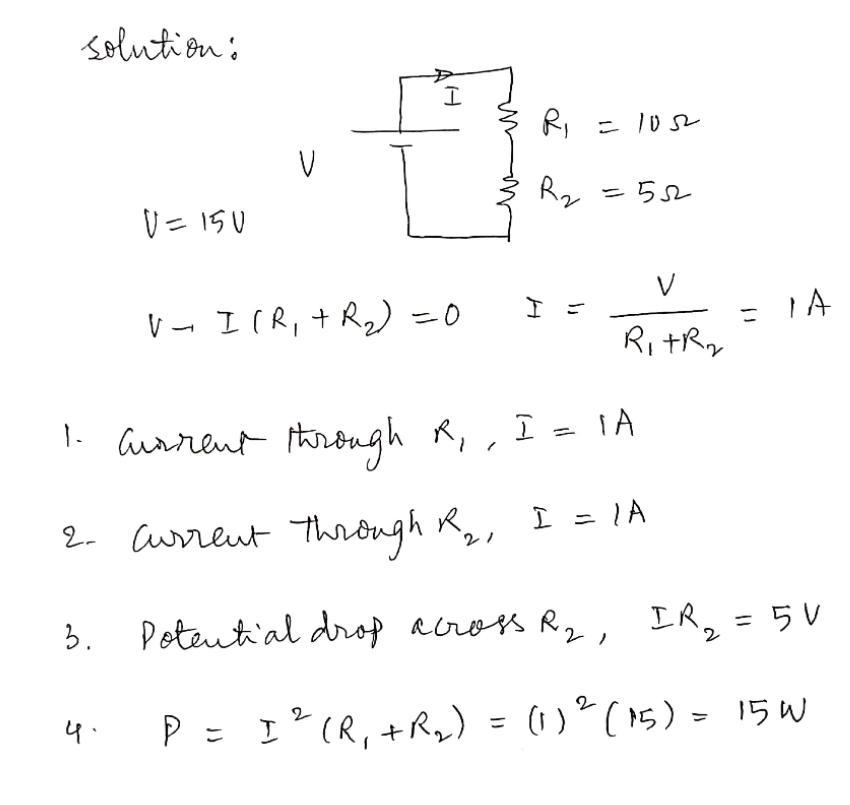 solution:
I
R₁ = 10Ω
V
R₂ = 5Ω
V = 15V
V - I (R₁ + R₂) = 0 I = V / R₁ + R₂ = 1A
1. Current through R₁, I = 1A
2- Current through R₂, I = 1A
3. Potential drop across R₂, IR₂ = 5V
4. P = I² (R₁ + R₂) = (1)² (15) = 15W